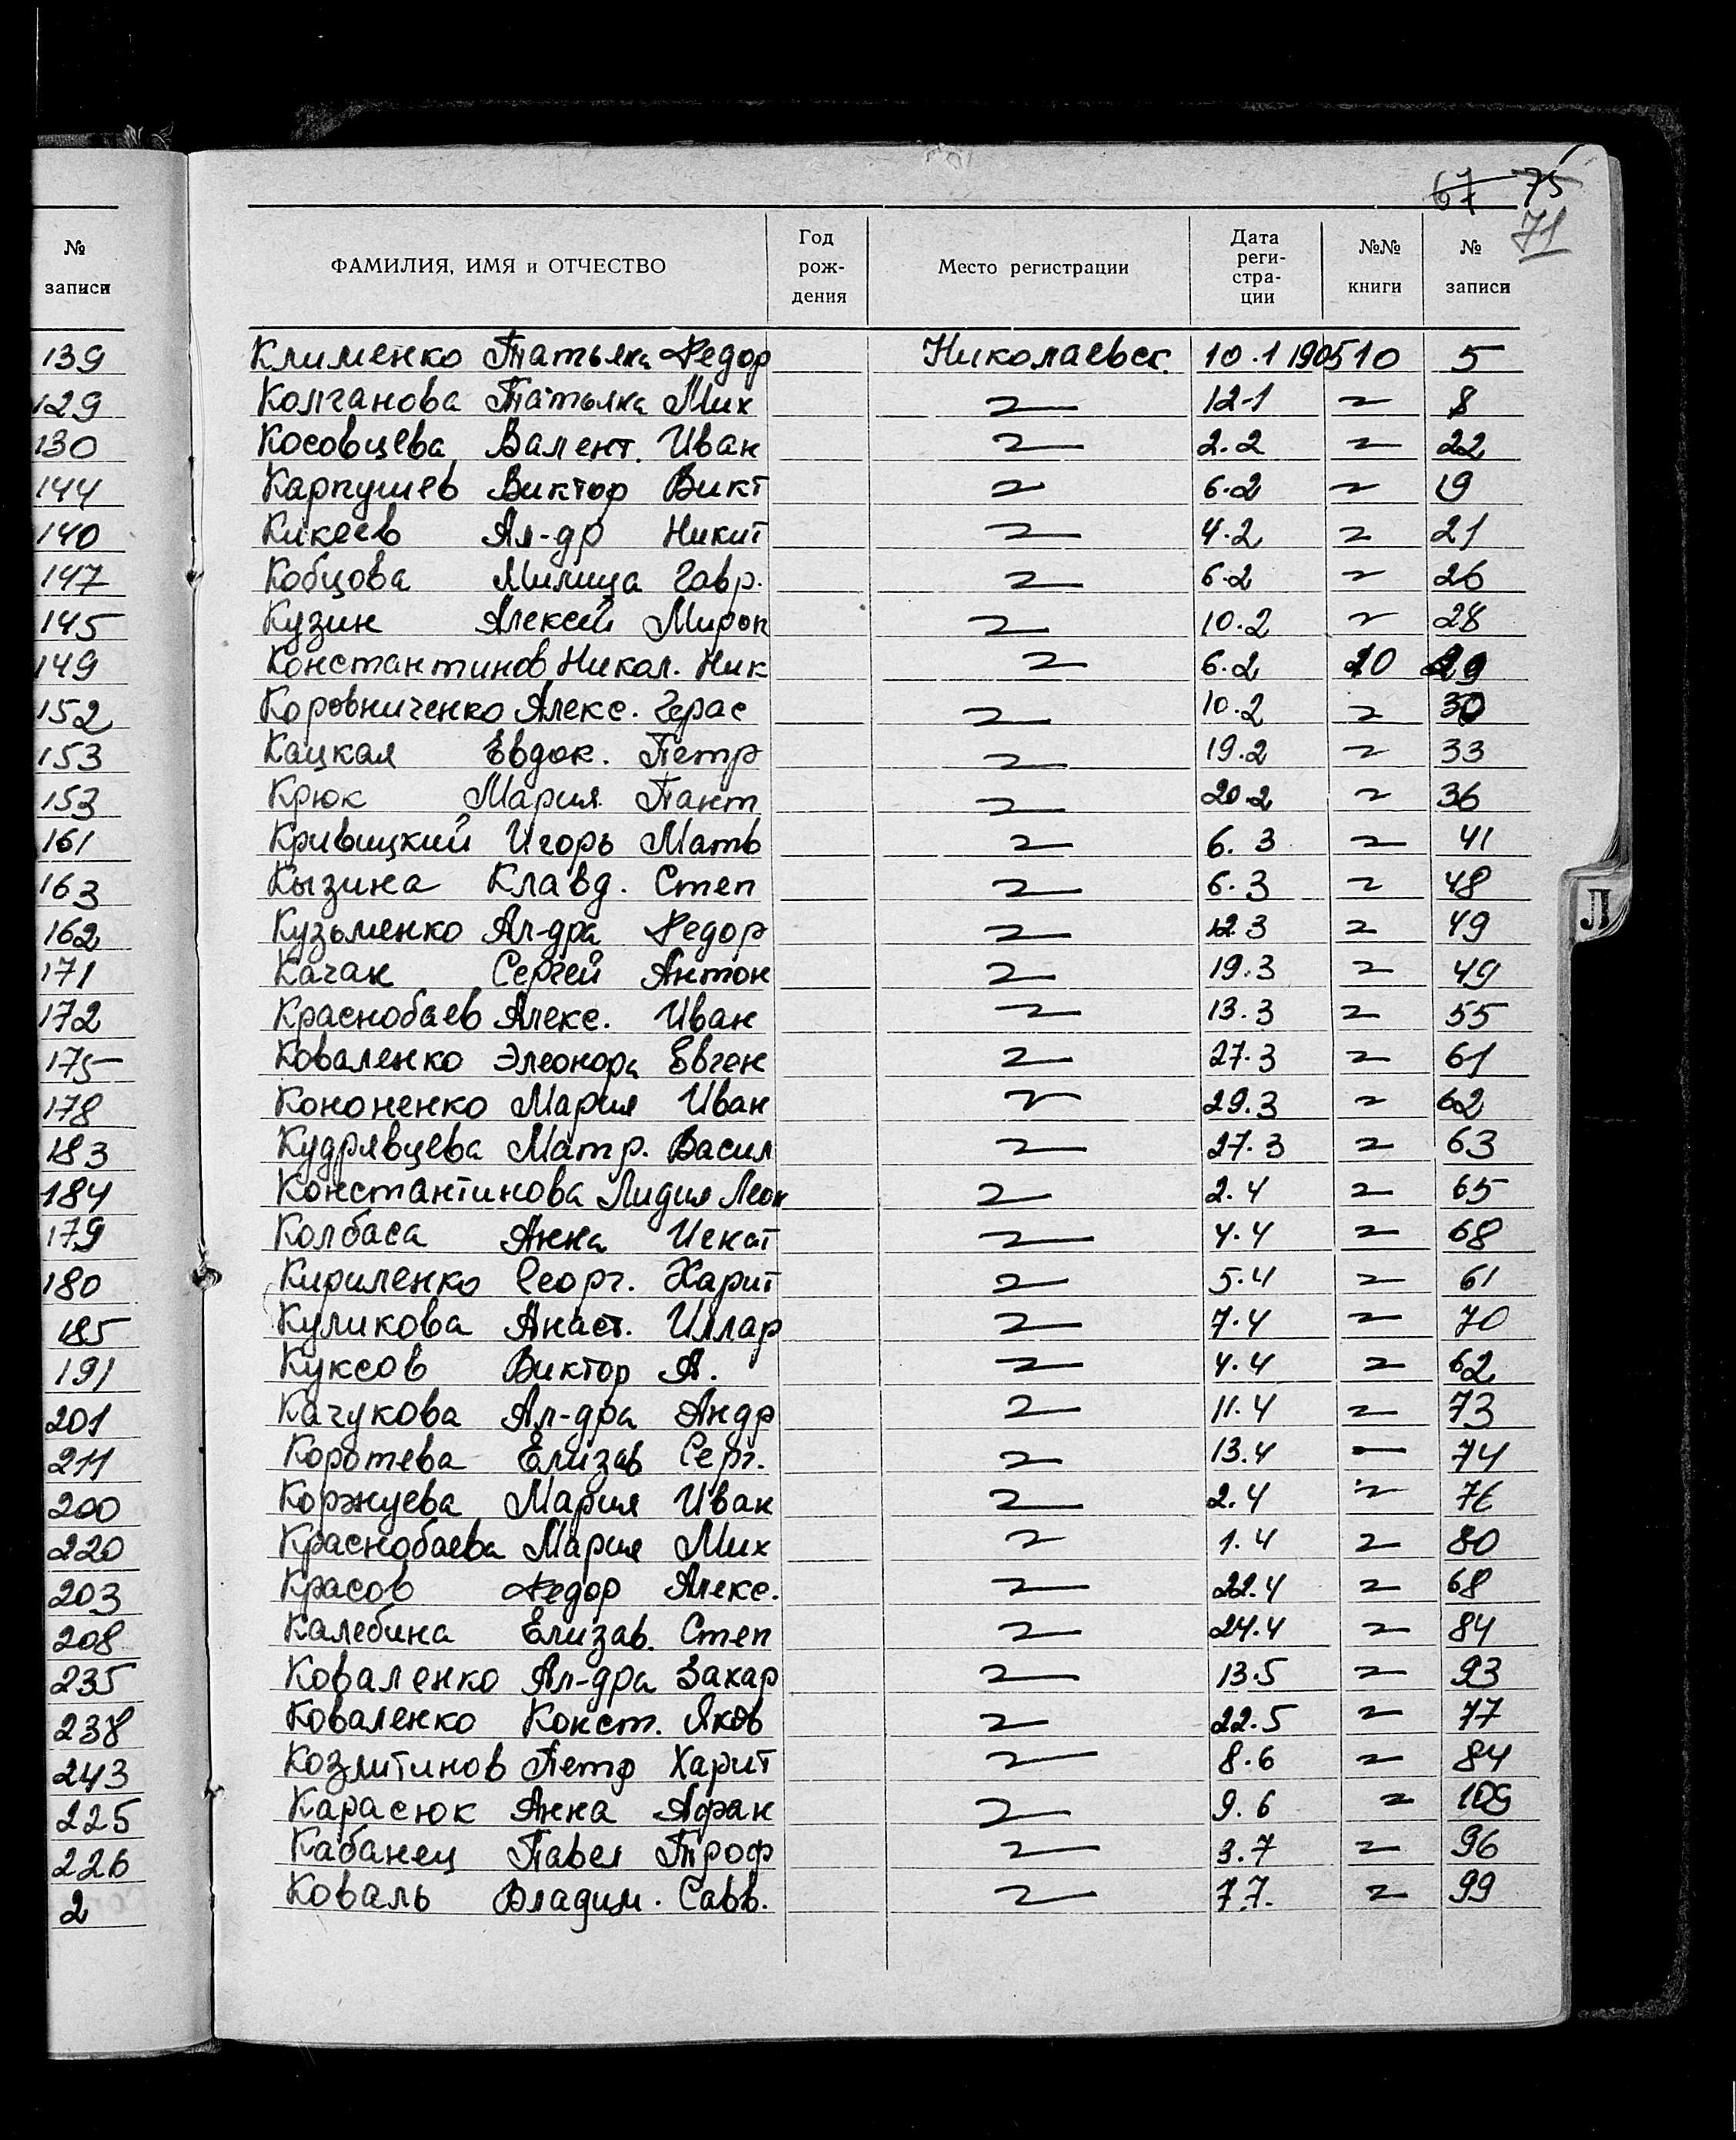 67 75
71
№ записи
ФАМИЛИЯ, ИМЯ и ОТЧЕСТВО Год рож- дения Место регистрации Дата реги- стра- ции №№ книги № записи
139 Клименко Татьяна Федор Николаевск. 10.1 1905 10 5
129 Колганова Татьяна Мих 〃 12-1 〃 8
130 Косовцева Валент. Иван 〃 2.2 〃 22
144 Карпушев Виктор Викт 〃 6.2 〃 19
140 Кикеев Ал-др Никит 〃 4.2 〃 21
147 Кобцова Милица Гавр. 〃 6.2 〃 26
145 Кузин Алексей Мирон 〃 10.2 〃 28
149 Константинов Никол. Ник 〃 6.2 10 29
152 Коровниченко Алекс. Герас 〃 10.2 〃 30
153 Кацкая Евдок. Петр 〃 19.2 〃 33
153 Крюк Мария Пант 〃 20.2 〃 36
161 Кривицкий Игорь Матв 〃 6.3 〃 41
163 Кызина Клавд. Степ 〃 6.3 〃 48
162 Кузьменко Ал-дра Федор 〃 12.3 〃 49
171 Качан Сергей Антон 〃 19.3 〃 49
172 Краснобаев Алекс. Иван 〃 13.3 〃 55
175 Коваленко Элеонора Евген 〃 27.3 〃 61
178 Кононенко Мария Иван 〃 29.3 〃 62
183 Кудрявцева Матр. Васил 〃 27.3 〃 63
184 Константинова Лидия Леон 〃 2.4 〃 65
179 Колбаса Анна Игнат 〃 4.4 〃 68
180 Кириленко Георг. Харит 〃 5.4 〃 61
185 Куликова Анаст. Иллар 〃 7.4 〃 70
191 Куксов Виктор А. 〃 4.4 〃 62
201 Качукова Ал-дра Андр 〃 11.4 〃 73
211 Коротева Елизав Серг. 〃 13.4 — 74
200 Коржуева Мария Иван 〃 2.4 〃 76
220 Краснобаева Мария Мих 〃 1.4 〃 80
203 Красов Федор Алекс. 〃 22.4 〃 68
208 Калебина Елизав. Степ 〃 24.4 〃 84
235 Коваленко Ал-дра Захар 〃 13.5 〃 93
238 Коваленко Конст. Яков 〃 22.5 〃 77
243 Козлитинов Петр Харит 〃 8.6 〃 84
225 Карасюк Анна Афан 〃 9.6 〃 109
226 Кабанец Павел Троф 〃 3.7 〃 96
2 Коваль Владим. Савв. 〃 7.7. 〃 99
Л